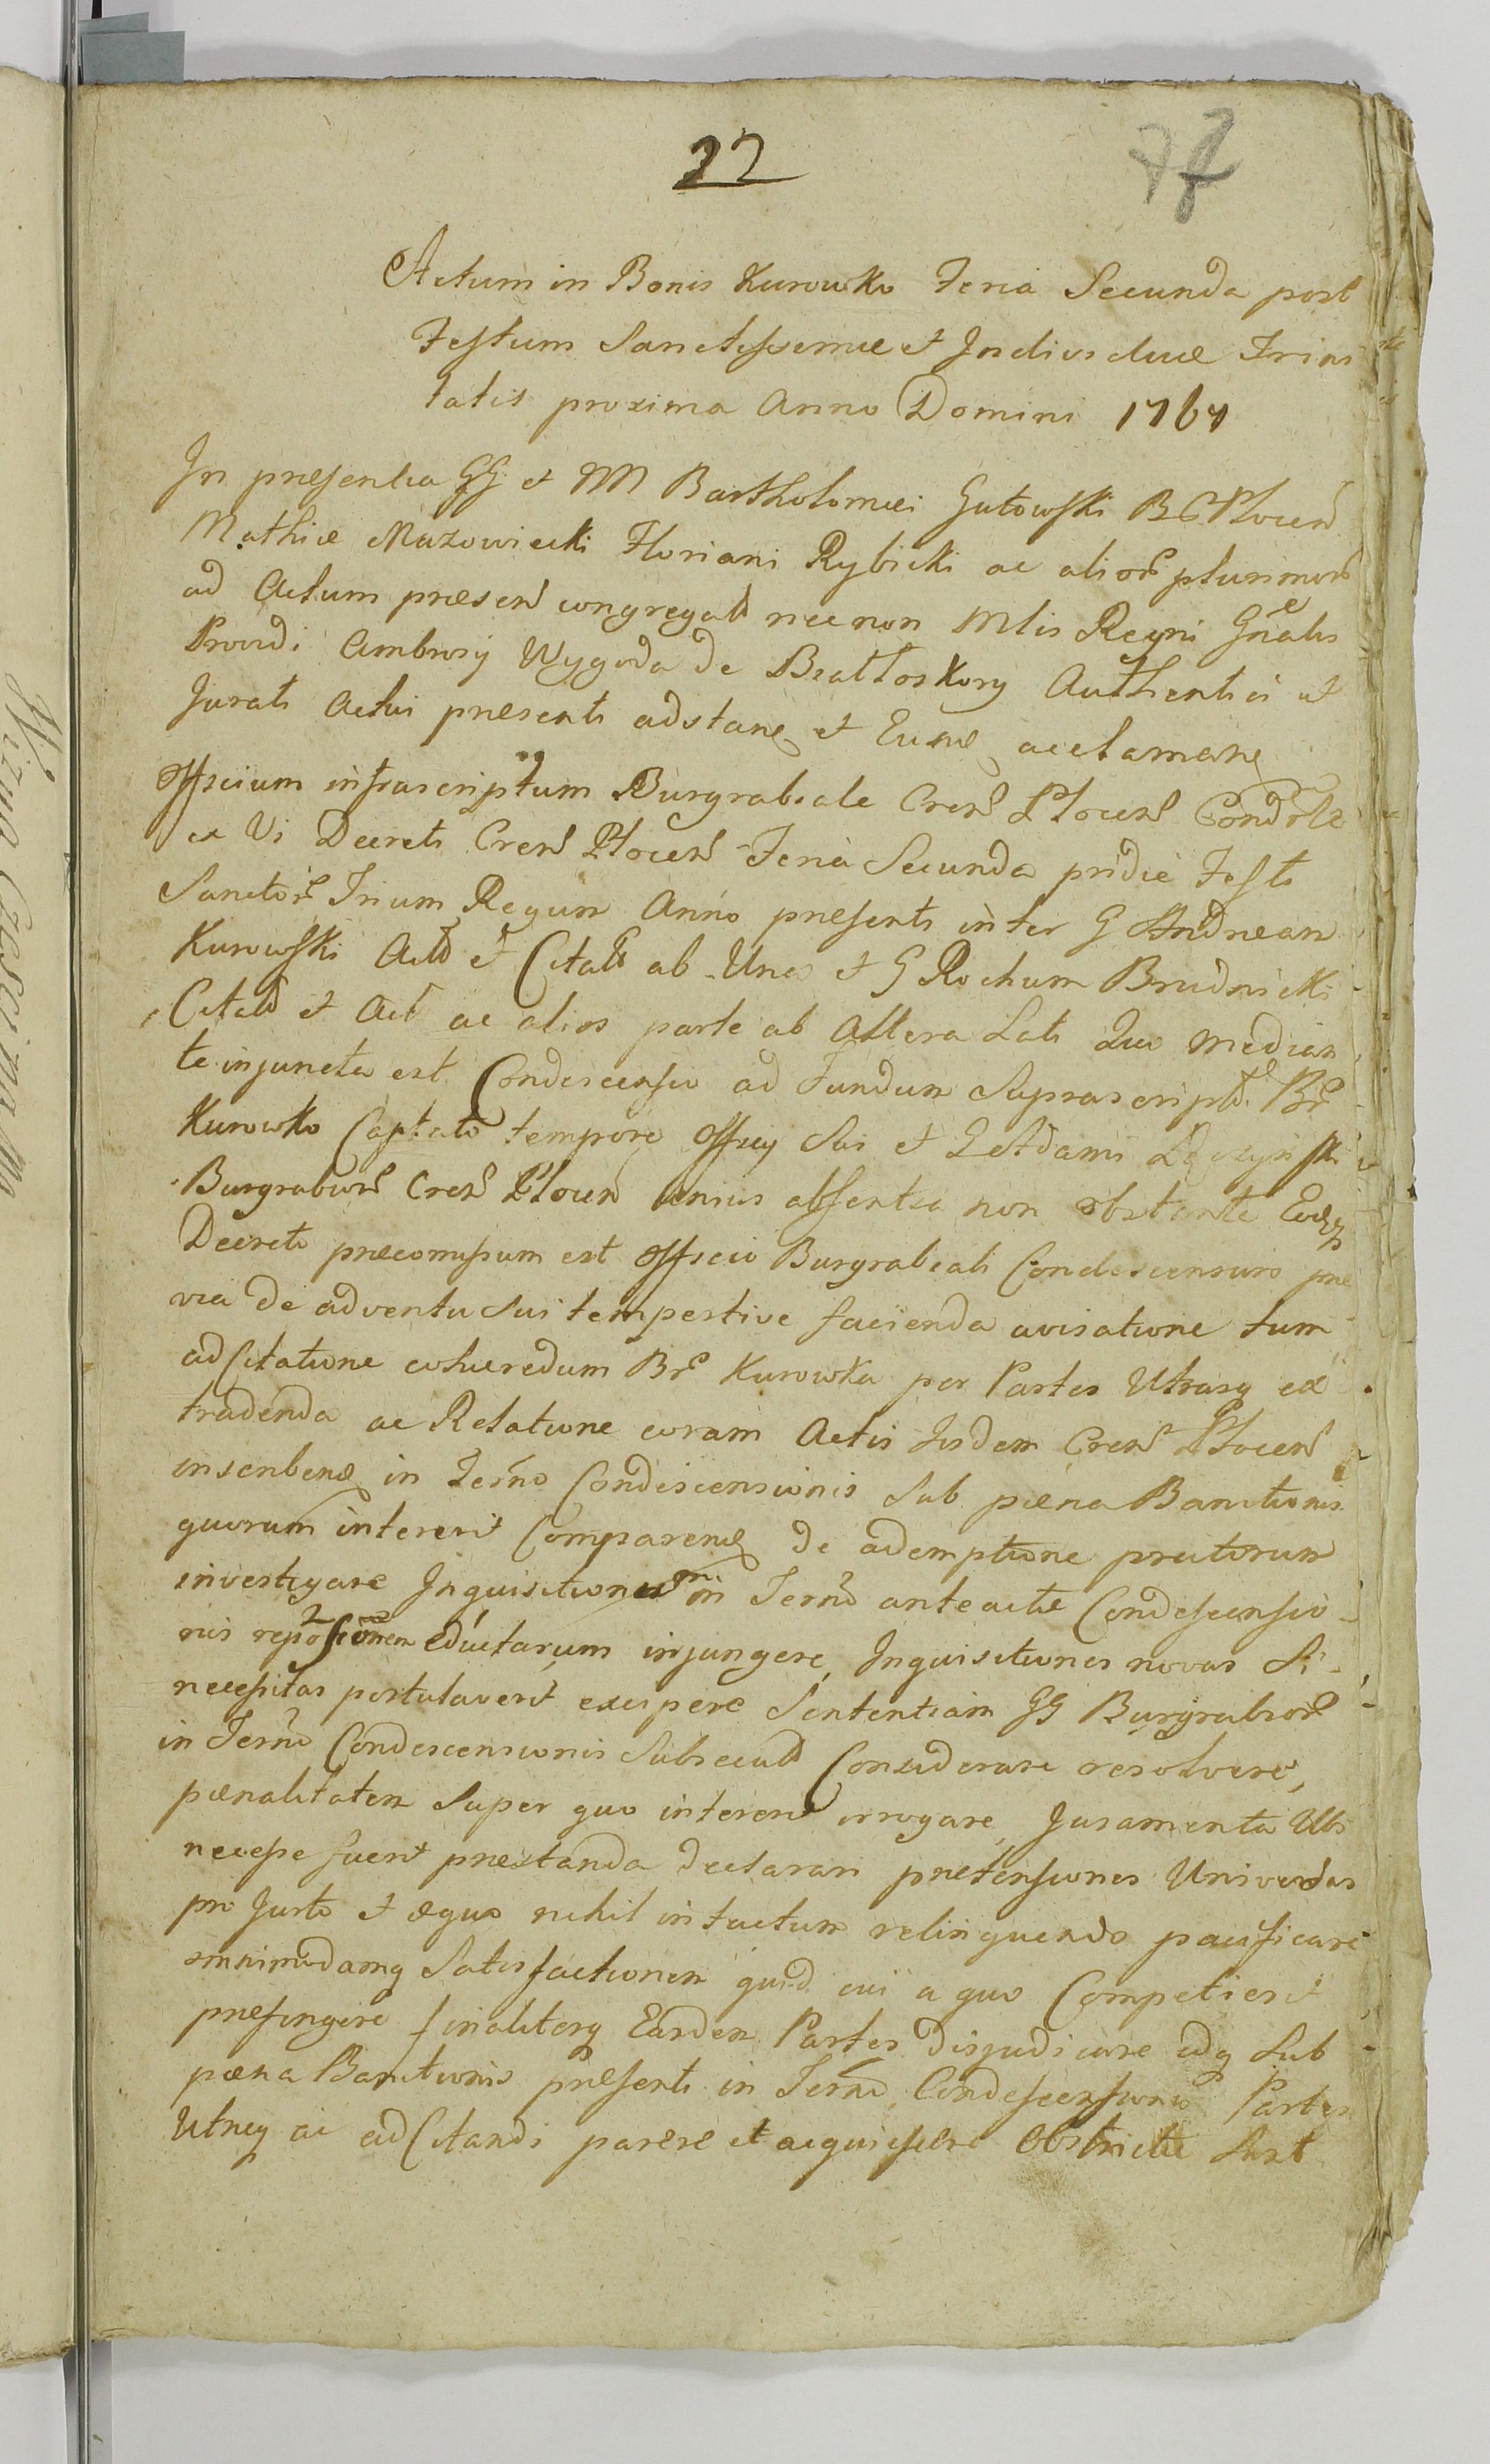 22
77
Actum in Bonis Kurowko Feria Secunda post
Festum Sanctissimæ et Individuæ Trini
tatis proxima Anno Domini 1767
In præsentia GG et MM Bartholomæi Gutowski B C Plocen
Mathiæ Mazowiecki Floriani Rybicki ac alior plurimor
ad Actum præsen congregat necnon Mlis Regni Gnalis
Providi Ambrosij Wygoda de Biattoskory Authentici et
Jurati Actui præsenti adstan et Eund acclaman
Officium infrascriptum Burgrabiale Cren Plocen Condole
ex Vi Decreti Cren Plocen Feria Secunda pridie Festi
Sanctor Trium Regum Anno præsenti inter G Andream
Kurowski Act et Citat ab Una et G Rochum Brudnicki
Citat et Act ac alios parte ab Altera Lati Quo median
te injuncta est Condescensio ad Fundum Suprascript Br
Kurowko Captato tempore Officij Sui et G Adami
Burgrabior Cren Plocen Unius absentia non obstante Eoq
Decreto præcomissum est Officio Burgrabiali Condescensuro præ
via de adventu Sui tempestive facienda avisatione tum
adCitatione cohæredum Br Kurowka per Partes Utrasq ex
tradenda ac Relatione coram Actis Iisdem Cren Plocen
inscriben in Termo Condescensionis Sub pæna Bannitionis
quorum intererit Comparen de ademptione pratorum
investigare Inquisitionem in Termo anteactæ Condescensio
nis eductarum injungere, Inquisitiones novas Si
necessitas postulaverit excipere Sententiam GG Burgrabior
in Termo Condescensionis Subsecut Considerare resolvere,
pænalitatem Super quo intererit irrogare, Juramenta Ubi
necesse fuerit præstanda declarari prætensiones Universas
pro Justo et æquo nihil intactum relinquendo pacificare
omnimodamq Satisfactionem quid cui a quo Competierit
præfingere finaliterq Easdem Partes disjudicare idq Sub
pæna Bannitionis præsenti in Termo Condescensionis Partes
Utræq ac adCitandi parere et acquiescere Obstrictæ Sunt